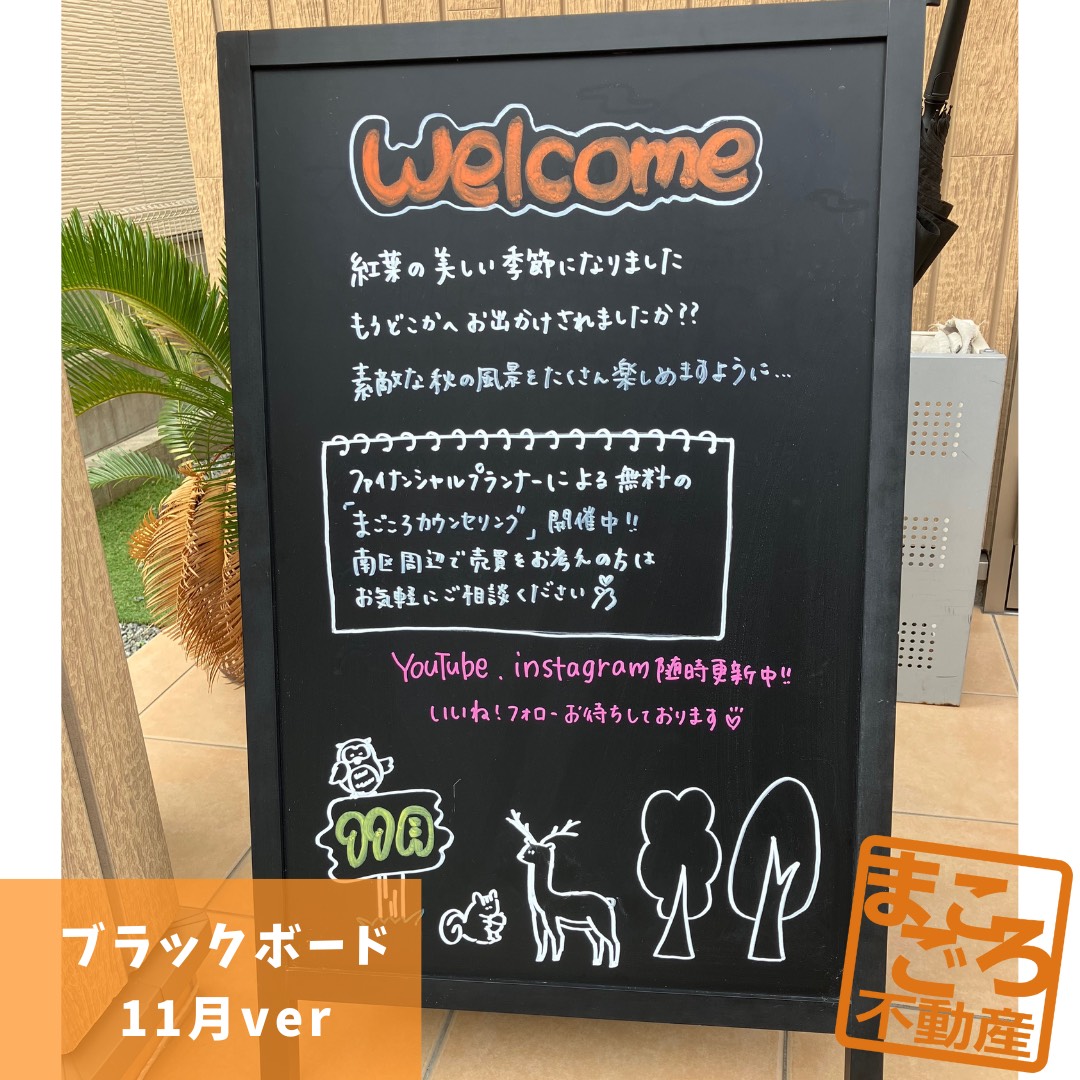 welcome
紅葉の美しい季節になりました
もうどこかへお出かけされましたか??
素敵な秋の風景をたくさん楽しめますように...
ファイナンシャルプランナーによる無料の
「まごころカウンセリング」開催中!!
南区周辺で売買をお考えの方は
お気軽にご相談ください
YouTube、instagram随時更新中!!
いいね!フォローお待ちしております♡
11月
ブラックボード
11月ver
まごころ
不動産